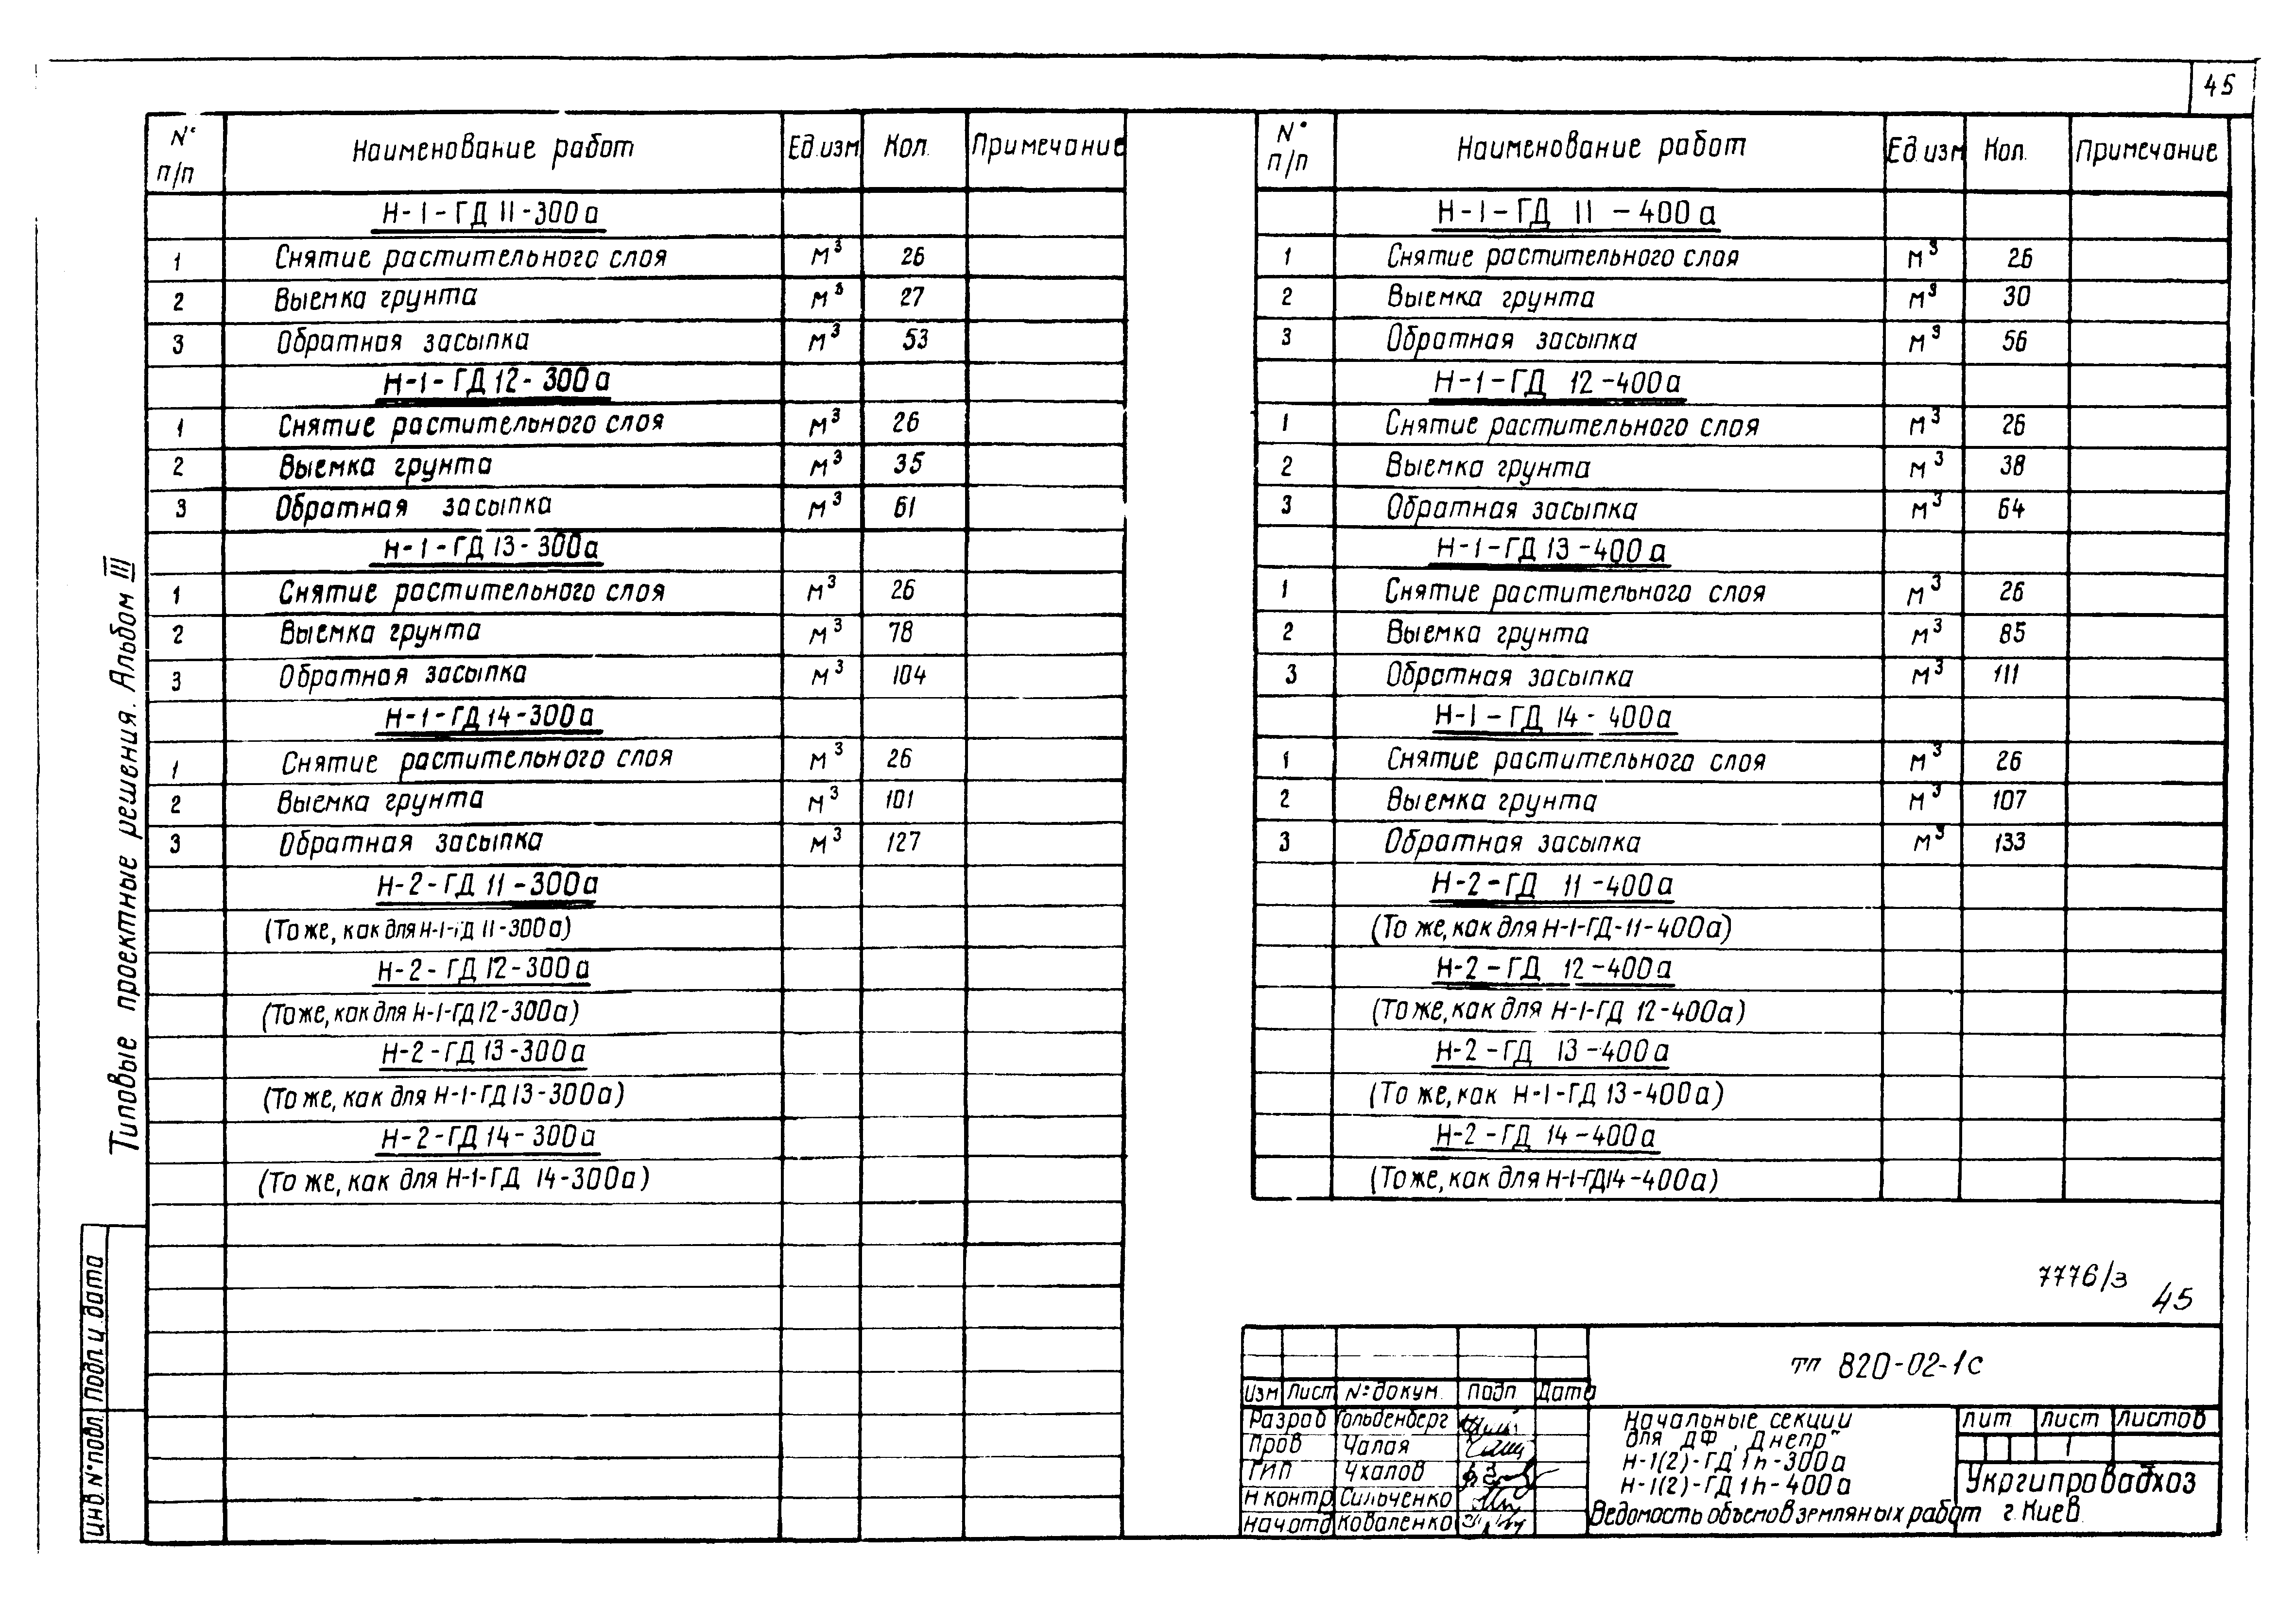 45
N° п/п Наименование работ Ед.изм Кол. Примечание
Н-1-ГД 11-300а
1 Снятие растительного слоя м³ 26
2 Выемка грунта м³ 27
3 Обратная засыпка м³ 53
Н-1-ГД 12-300а
1 Снятие растительного слоя м³ 26
2 Выемка грунта м³ 35
3 Обратная засыпка м³ 61
Н-1-ГД 13-300а
1 Снятие растительного слоя м³ 26
2 Выемка грунта м³ 78
3 Обратная засыпка м³ 104
Н-1-ГД 14-300а
1 Снятие растительного слоя м³ 26
2 Выемка грунта м³ 101
3 Обратная засыпка м³ 127
Н-2-ГД 11-300а
(То же, как для Н-1-ГД 11-300а)
Н-2-ГД 12-300а
(То же, как для Н-1-ГД 12-300а)
Н-2-ГД 13-300а
(То же, как для Н-1-ГД 13-300а)
Н-2-ГД 14-300а
(То же, как для Н-1-ГД 14-300а)
N° п/п Наименование работ Ед.изм Кол. Примечание
Н-1-ГД 11-400а
1 Снятие растительного слоя м³ 26
2 Выемка грунта м³ 30
3 Обратная засыпка м³ 56
Н-1-ГД 12-400а
1 Снятие растительного слоя м³ 26
2 Выемка грунта м³ 38
3 Обратная засыпка м³ 64
Н-1-ГД 13-400а
1 Снятие растительного слоя м³ 26
2 Выемка грунта м³ 85
3 Обратная засыпка м³ 111
Н-1-ГД 14-400а
1 Снятие растительного слоя м³ 26
2 Выемка грунта м³ 107
3 Обратная засыпка м³ 133
Н-2-ГД 11-400а
(То же, как для Н-1-ГД-11-400а)
Н-2-ГД 12-400а
(То же, как для Н-1-ГД 12-400а)
Н-2-ГД 13-400а
(То же, как Н-1-ГД 13-400а)
Н-2-ГД 14-400а
(То же, как для Н-1-ГД14-400а)
Типовые проектные решения. Альбом III
Инв.N°подл. Подп. и дата
7776/3
45
тп 820-02-1с
Изм Лист N° докум. Подп Дата
Разраб Гольденберг
Пров Чалая
ГИП Ухалов
Н контр Сильченко
Нач отд Коваленко
Начальные секции
для ДФ „Днепр"
Н-1(2)-ГД 1h-300а
Н-1(2)-ГД 1h-400а
Ведомость объемов земляных работ
Лит Лист Листов
1
Укргипроводхоз
г. Киев